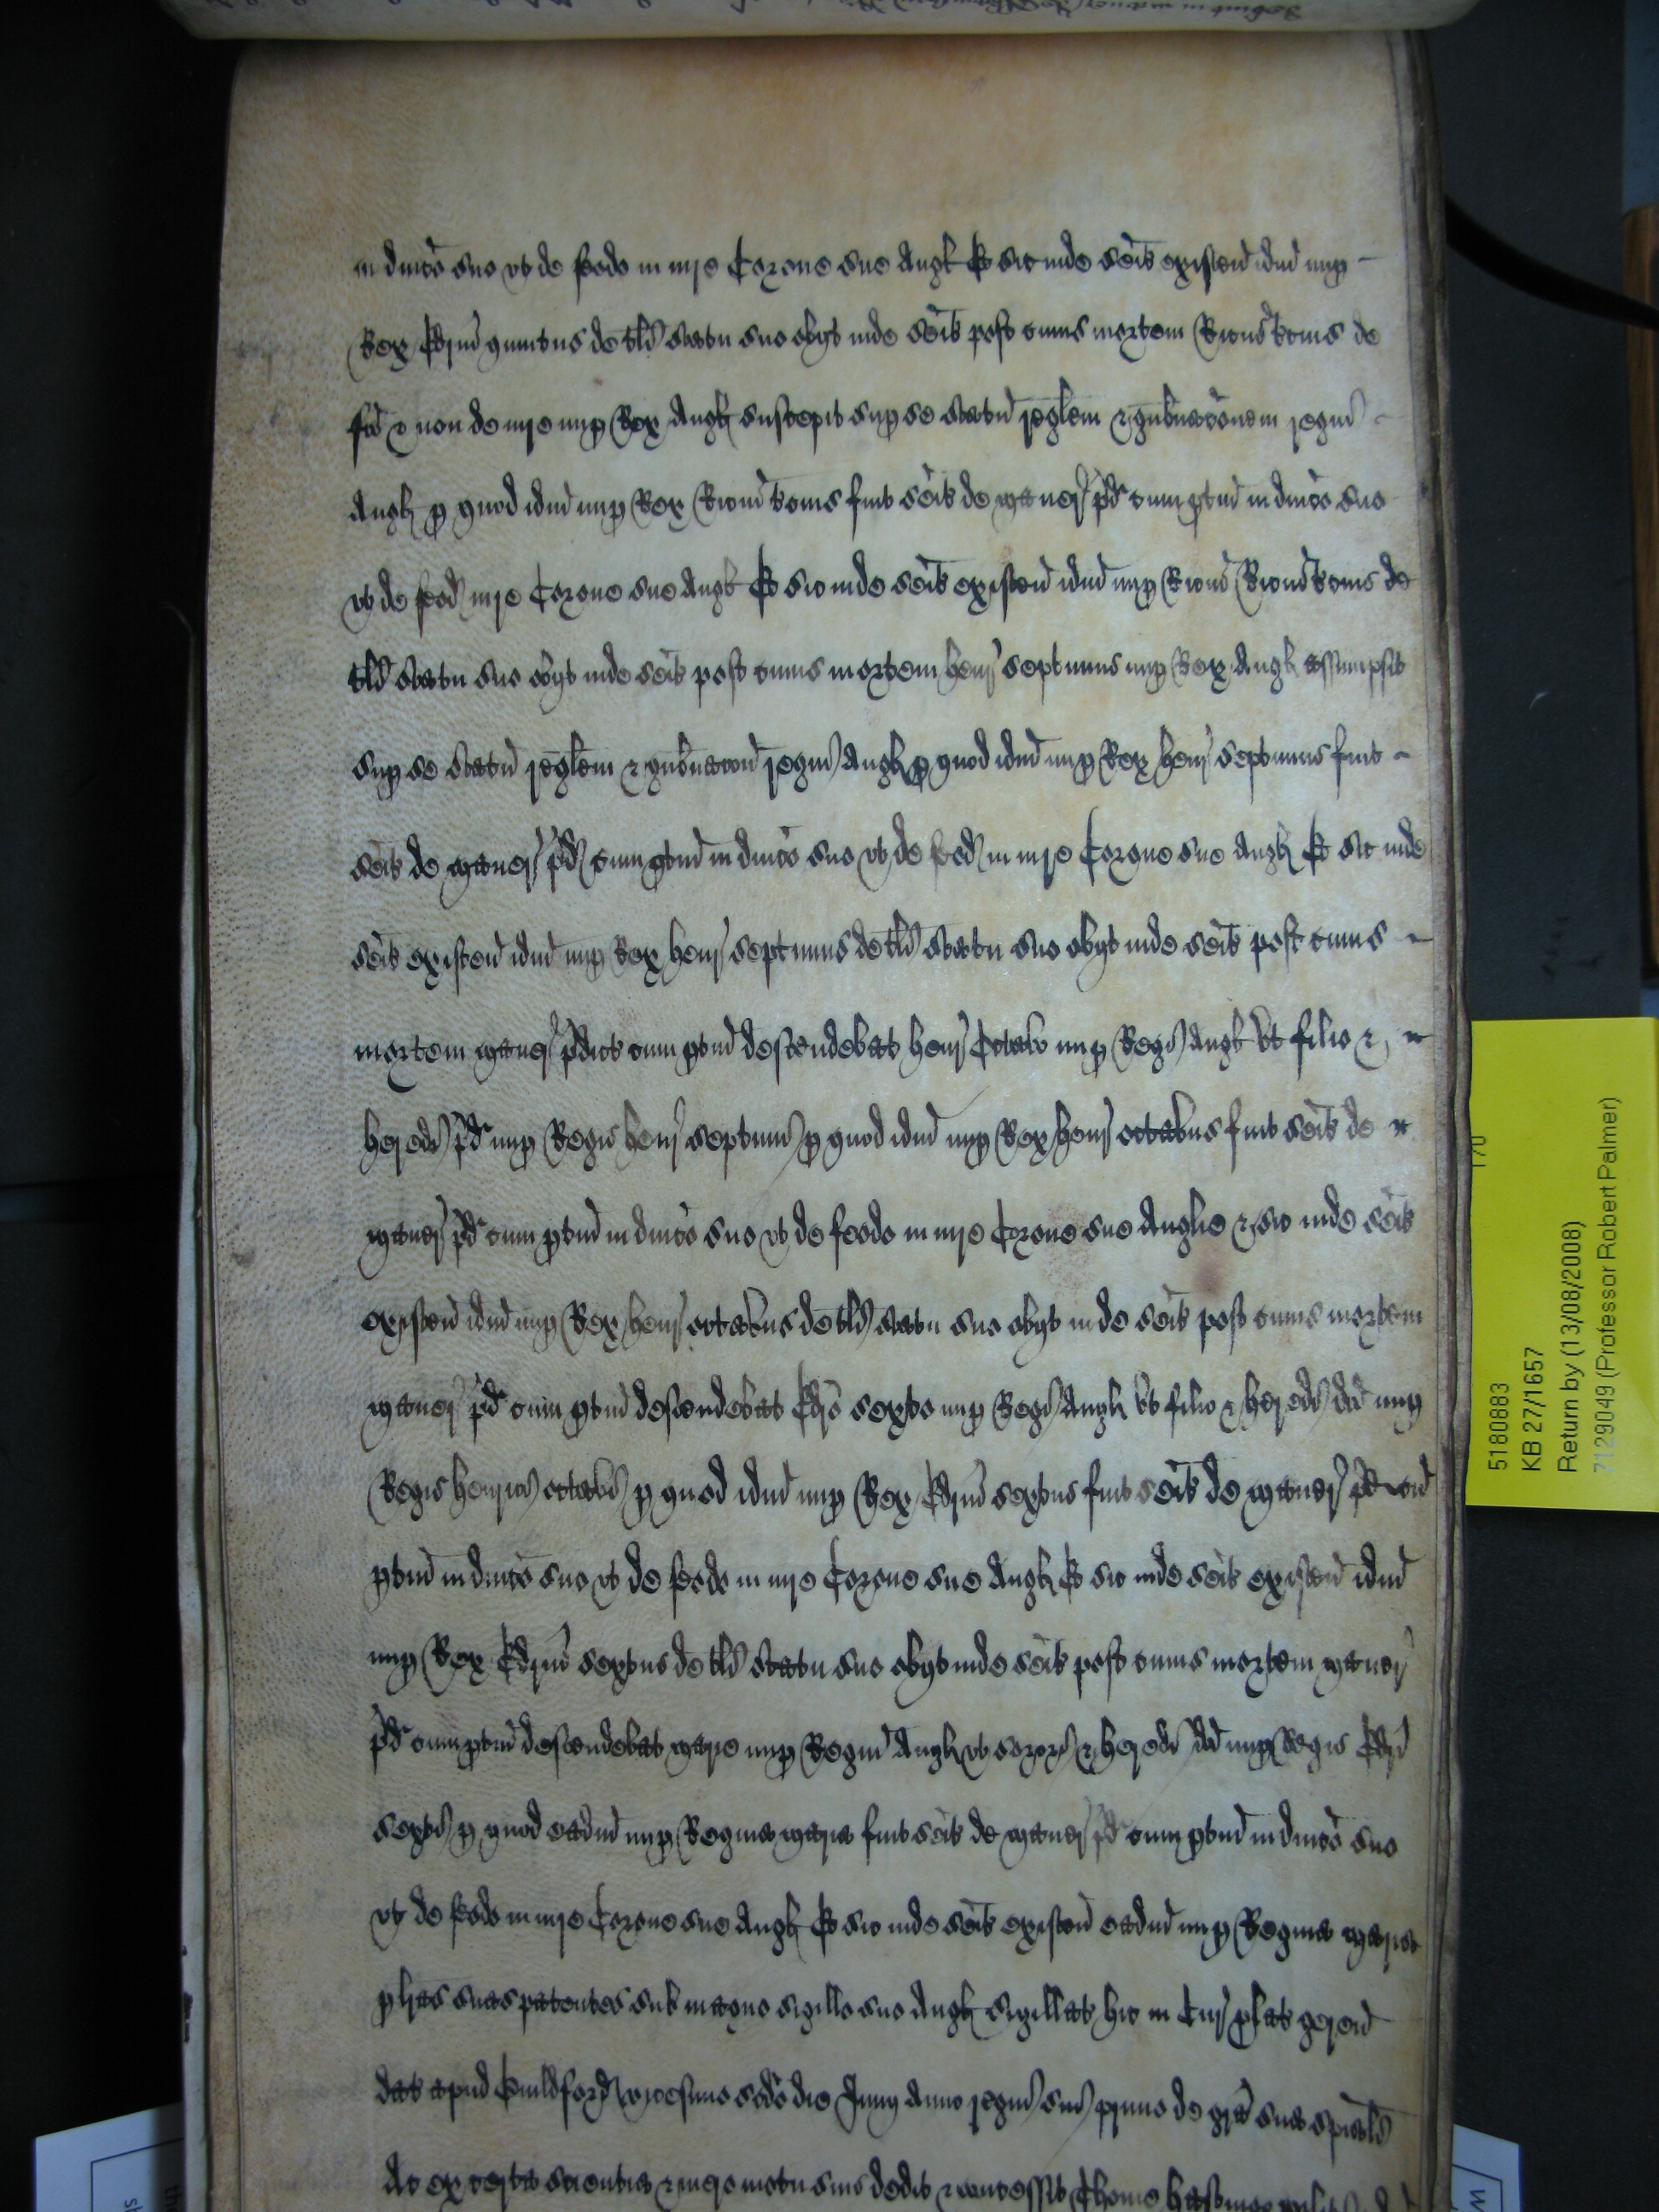 in dnico suo ut de feodo in iure Corone sue Angl Et sic inde seit existen idm nup
Rex Edrus quintus de tali statu suo obijt inde seit post cuius mortem Ricus tcius de
fco & non de iure nup Rex Angl suscepit sup se statu regalem & gubnaconem regni
Angl p quod idm nup Rex Ricus tcius fuit seit de maner pd cum ptin in dnico suo
ut de feod iure Corone sue Angl Et sic inde seit existen idm nup Ricus Ricus tcius de
tali statu suo obijt inde seit post cuius mortem Henr septimus nup Rex Angl assumpsit
sup se statu regalem & gubnacon regni Angl p quod idm nup Rex Henr septimus fuit
seit de maner pd cum ptin in dnico suo ut de feod in iure Corone sue Angl Et sic inde
seit existen idm nup Rex Henr septimus de tali statu suo obijt inde seit post cuius
mortem maner pdict cum ptin descendebat Henr Octavo nup Regi Angl ut filio &
heredi pd nup Regis Henr septimi p quod idm nup Rex Henr octavus fuit seit de
maner pd cum ptin in dnico suo ut de feodo in iure Corone sue Anglie & sic inde seit
existen idm nup Rex Henr octavus de tali statu suo obijt inde seit post cuius mortem
maner pd cum ptin descendebat Edro sexto nup Regi Angl ut filio & heredi dci nup
Regis Henrici octavi p quod idm nup Rex Edrus sextus fuit seit de maner pd cu
ptin in dnico suo ut de feodo in iure Corone sue Angl Et sic inde seit existen idm
nup Rex Edrus sextus de tali statu suo obijt inde seit post cuius mortem maner
pd cum ptin descendebat Marie nup Regine Angl ut sorori & heredi dci nup Regis Edri
sexti p quod eadm nup Regina Maria fuit seit de maner pd cum ptin in dnico suo
ut de feodo in iure Corone sue Angl Et sic inde seit existen eadm nup Regina Maria
p lras suas patentes sub magno sigillo suo Angl sigillat hic in Cur plat geren
dat apud Guildford vicesimo scdo die Junij Anno regni sui primo de gra sua speciali
Ac ex certa sciencia & mero motu suis dedit & concessit Thome Hastings
5180883
KB 27/1657
Return by (13/08/2008)
7129049 (Professor Robert Palmer)